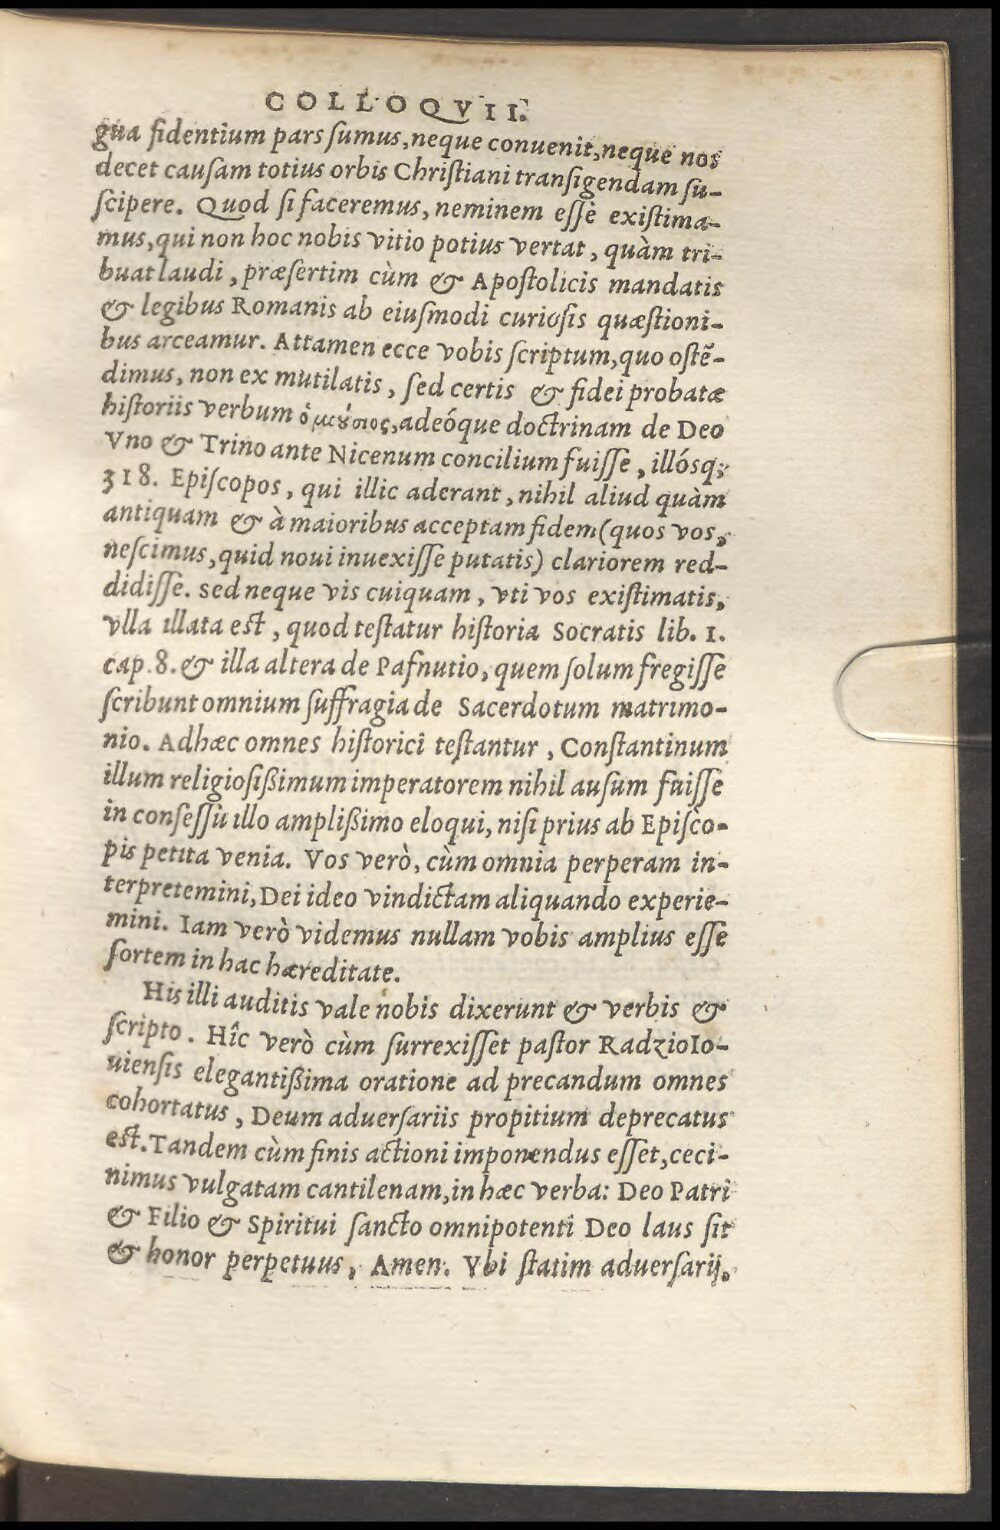 COLLOQVII.
gua fidentium pars ſumus, neque conuenit, neque nos
decet cauſam totius orbis Chriſtiani tranſigendam ſu-
ſcipere. Quod ſi faceremus, neminem eſſe exiſtima-
mus, qui non hoc nobis vitio potius vertat, quàm tri-
buat laudi, præſertim cùm & Apoſtolicis mandatis
& legibus Romanis ab eiuſmodi curioſis quæſtioni-
bus arceamur. Attamen ecce vobis ſcriptum, quo oſtẽ-
dimus, non ex mutilatis, ſed certis & fidei probatæ
hiſtoriis verbum ὁμούσιος, adeóque doctrinam de Deo
Vno & Trino ante Nicenum concilium fuiſſe, illósq;
318. Epiſcopos, qui illic aderant, nihil aliud quàm
antiquam & à maioribus acceptam fidem (quos vos,
neſcimus, quid noui inuexiſſe putatis) clariorem red-
didiſſe. sed neque vis cuiquam, vti vos exiſtimatis,
vlla illata eſt, quod teſtatur hiſtoria Socratis lib. 1.
cap. 8. & illa altera de Pafnutio, quem ſolum fregiſſe
ſcribunt omnium ſuffragia de Sacerdotum matrimo-
nio. Adhæc omnes hiſtorici teſtantur, Conſtantinum
illum religioſißimum imperatorem nihil auſum fuiſſe
in conſeſſu illo amplißimo eloqui, niſi prius ab Epiſco-
pis petita venia. Vos verò, cùm omnia perperam in-
terpretemini, Dei ideo vindictam aliquando experie-
mini. Iam verò videmus nullam vobis amplius eſſe
ſortem in hac hæreditate.
His illi auditis vale nobis dixerunt & verbis &
ſcripto. Hîc verò cùm ſurrexiſſet paſtor Radziolo-
uienſis elegantißima oratione ad precandum omnes
cohortatus, Deum aduerſariis propitium deprecatus
eſt. Tandem cùm finis actioni imponendus eſſet, ceci-
nimus vulgatam cantilenam, in hæc verba: Deo Patri
& Filio & Spiritui ſancto omnipotenti Deo laus ſit
& honor perpetuus, Amen. Vbi ſtatim aduerſarij,